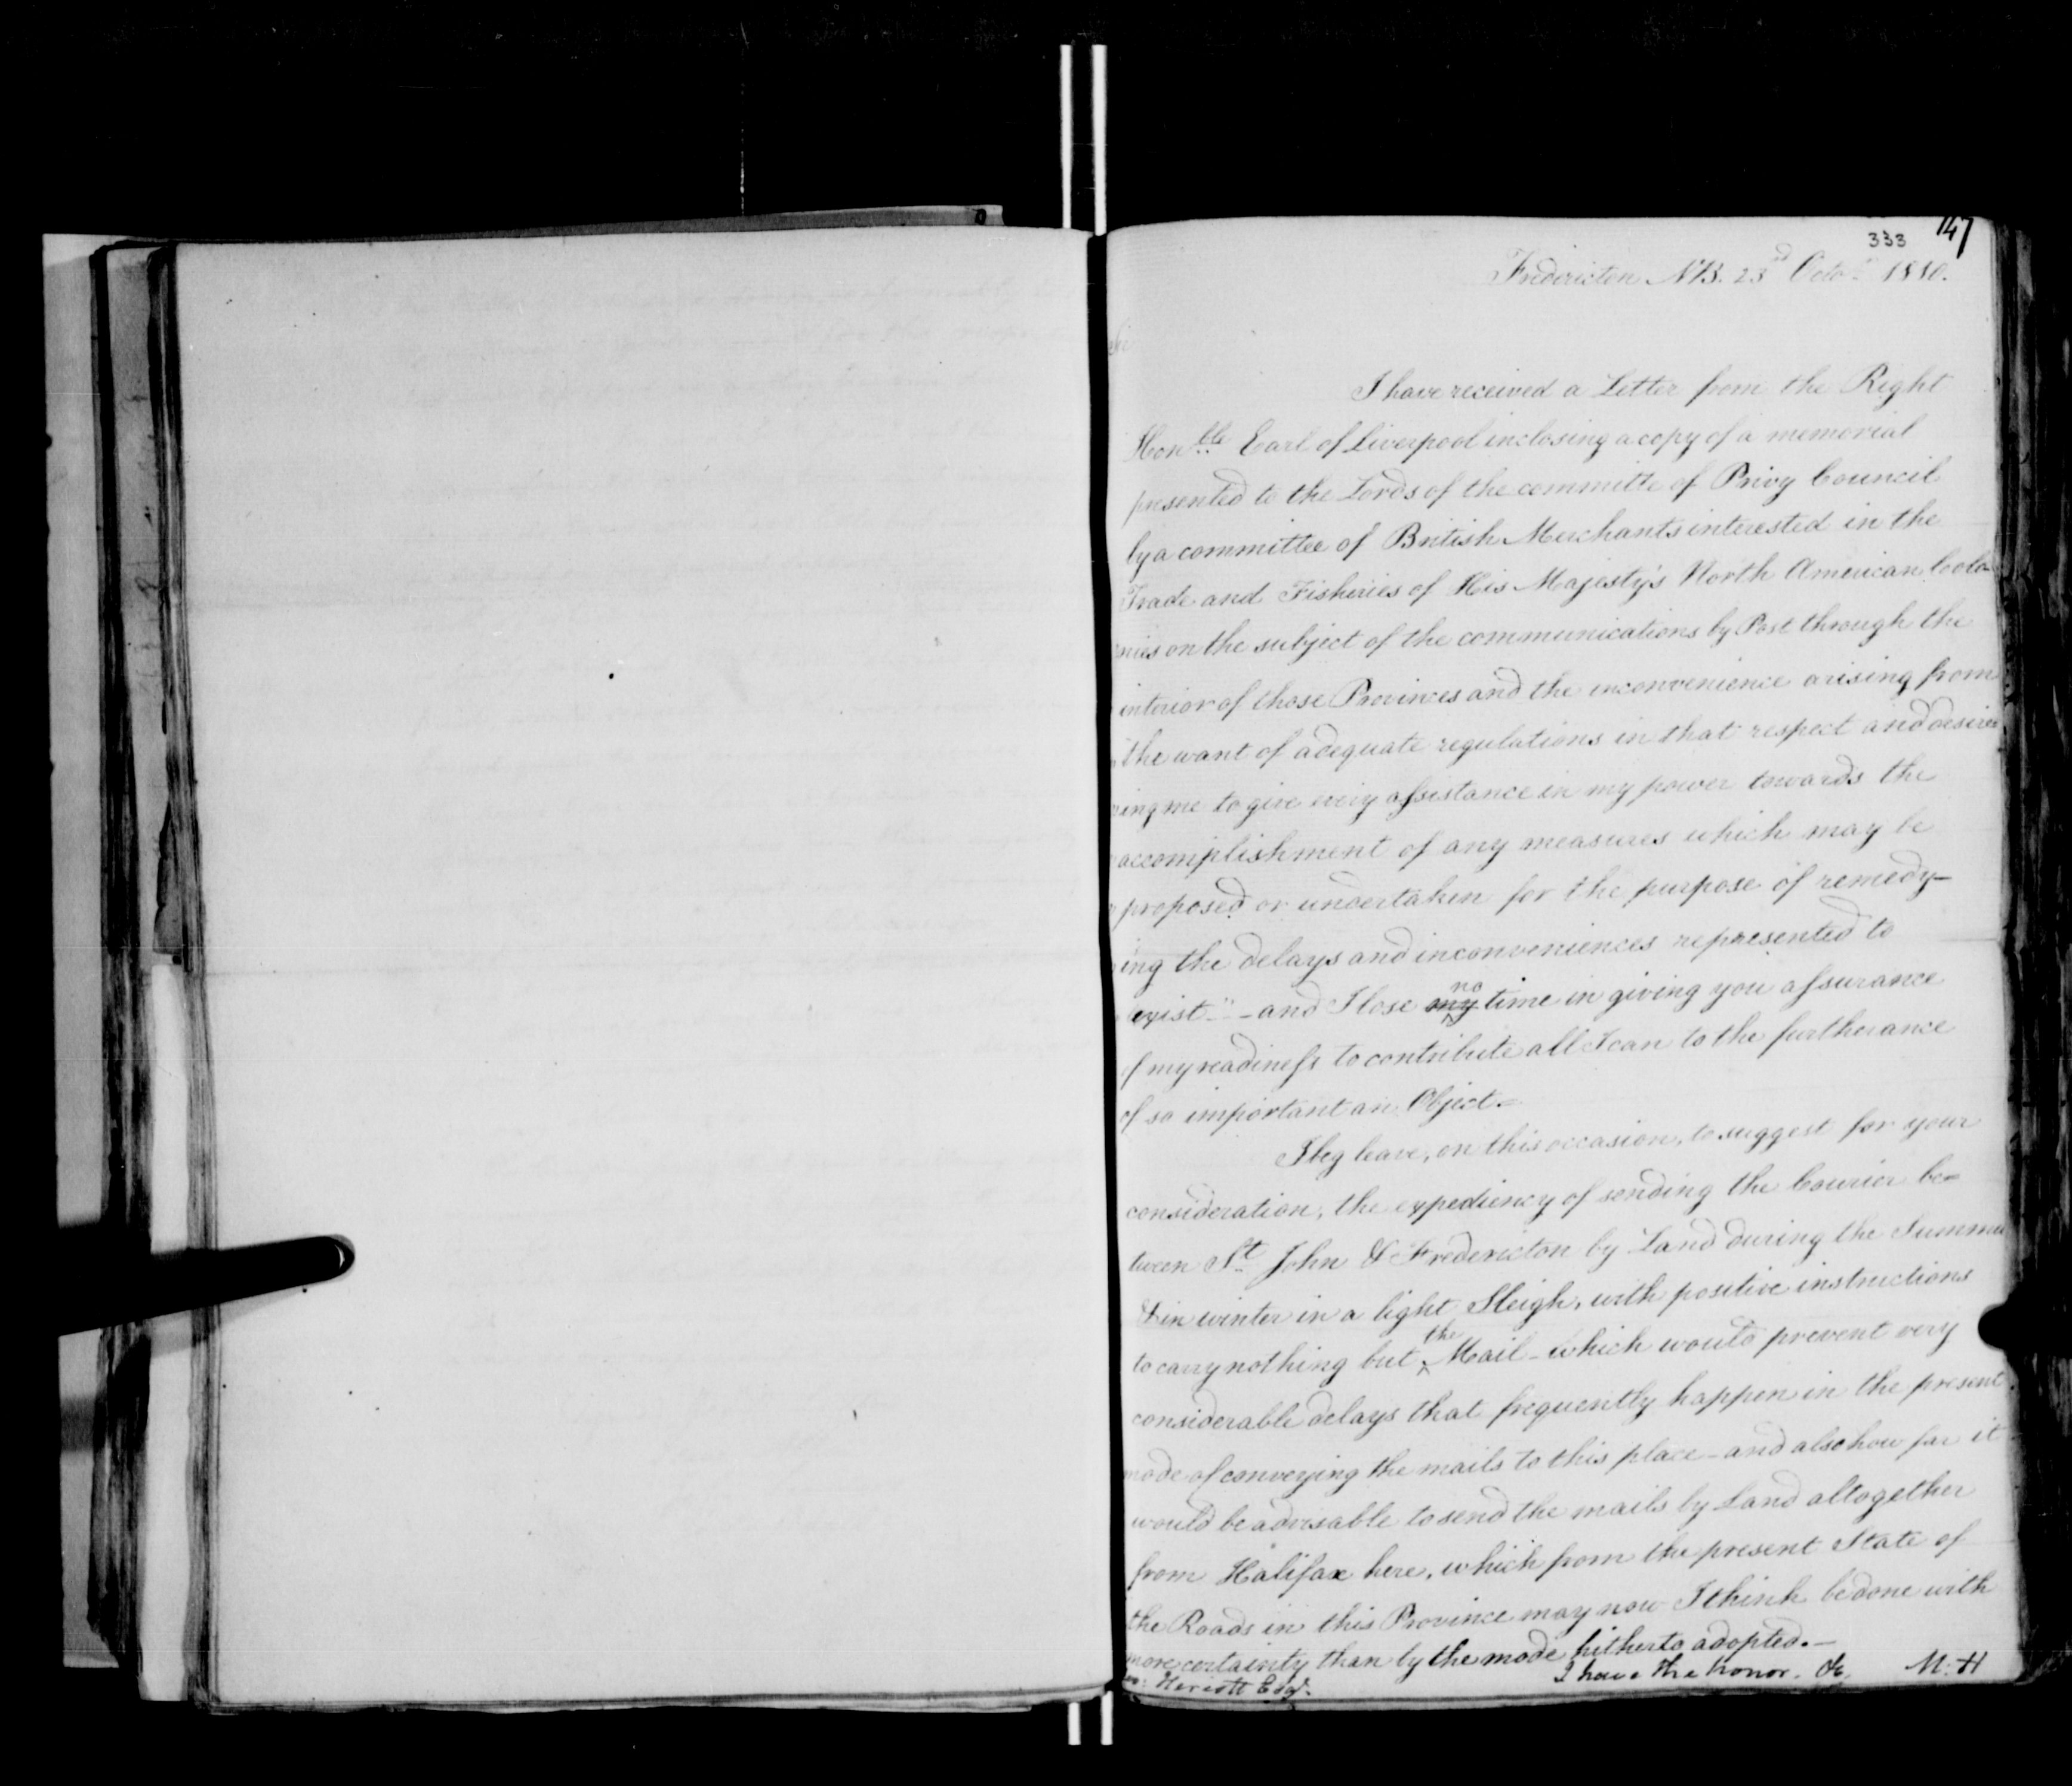 333 147
Fredericton N.B. 23d Octor. 1810.
I have received a Letter from the Right
Honble Earl of Liverpool inclosing a copy of a memorial
presented to the Lords of the committe of Privy Council
by a committee of British Merchants interested in the
Trade and Fisheries of His Majesty's North American Colo-
nies on the subject of the communications by Post through the
interior of those Provinces and the inconvenience arising from
the want of adequate regulations in that respect and desir-
ing me to give every assistance in my power towards the
accomplishment of any measures which may be
proposed or undertaken for the purpose of remedy-
ing the delays and inconveniences represented to
exist" - and I lose my no time in giving you assurance
of my readiness to contribute all I can to the furtherance
of so important an Object =
I beg leave, on this occasion, to suggest for your
consideration, the expediency of sending the Courier be=
tween St. John & Fredericton by Land during the Summer
& in winter in a light Sleigh, with positive instructions
to carry nothing but the Mail - which would prevent very
considerable delays that frequently happen in the present
mode of conveying the mails to this place - and also how far it
would be advisable to send the mails by Land altogether
from Halifax here, which from the present State of
the Roads in this Province may now I think be done with
more certainty than by the mode hitherto adopted. —
I have the honor - &c. M. H
Heriott Esqr.